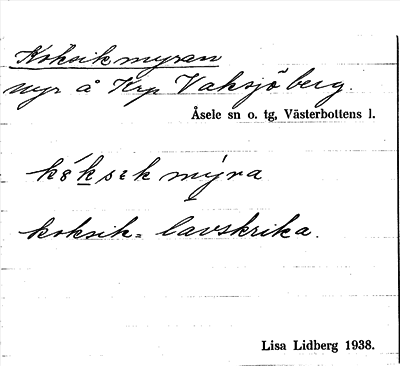 Koksikmyran
myr å Krp Vaksjöberg.
Åsele sn o. tg, Västerbottens l.
myra
koksik = lavskrika.
Lisa Lidberg 1938.